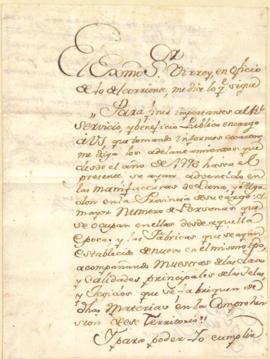 El Exmo. Sr. Virrey, en Oficio
de 10 del corriente, me dice lo q.e sigue
"Para fines importantes al Rl.
servicio, y beneficio Publico encargo
a VS. que tomando informes
me diga los adelantamientos que
desde el año de 1796 hasta el
presente se ayan advertido en
las manifacturas de Lana, y Algo
don en la Provincia de su cargo; el
mayor Numero de Personas que
se ocupan en ellas desde aquella
Epoca; y las Fabricas que se ayan
establecido de nuevo en el mismo tpo.
acompañando Muestras de las clases
y Calidades principales de las Telas
y Tegidos que se fabriquen de
dhas Materias en la Comprehen
sion de ese Territorio"
Y para poder Yo cumplir